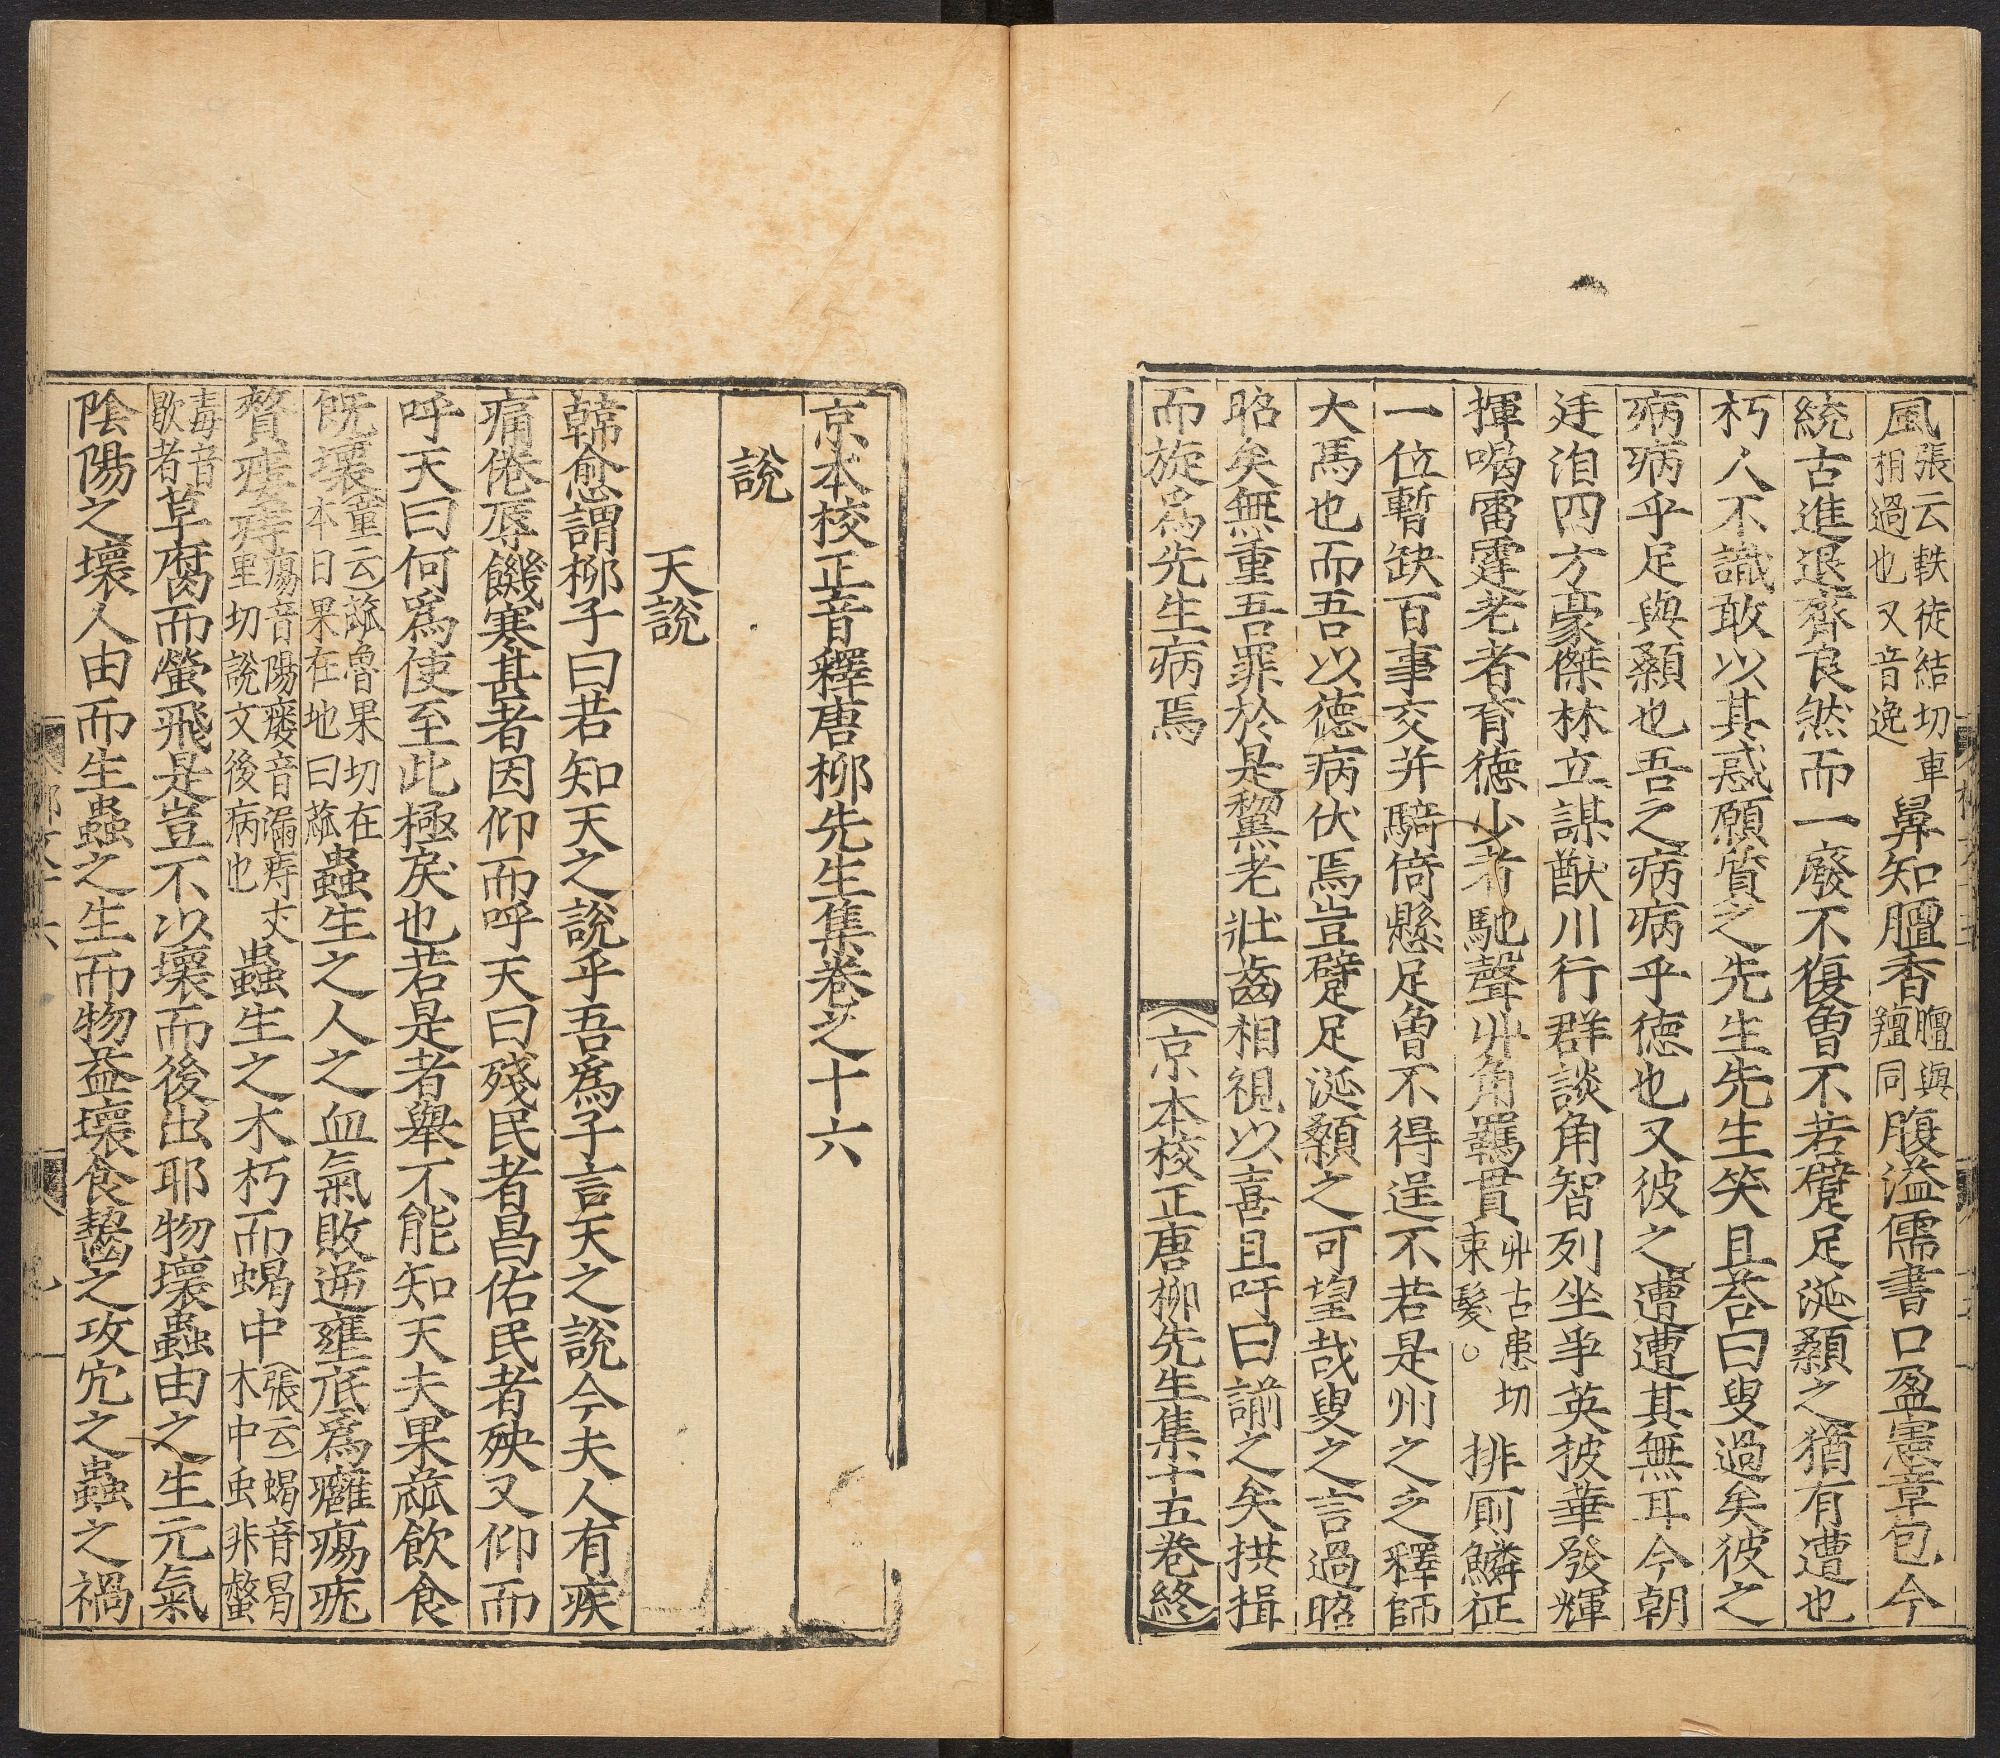 風張云軼徒結切車捐過也又音逸鼻知膻香膻與羶同腹溢儒書口盈憲章包今
統古進退齊良然而一廢不復曽不若躄足涎顙之猶有遭也
朽人不識敢以其惑願質之先生先生笑且荅曰叟過矣彼之
病病乎足與顙也吾之病病乎德也又彼之遭遭其無耳今朝
廷洎四方豪傑林立謀猷川行群談角智列坐爭英披華發輝
揮喝雷霆老者育德少者馳聲丱角羈貫丱古患切束髮○排厠鱗征
一位暫缺百事交并騎倚懸足曽不得逞不若是州之乏釋師
大馬也而吾以德病伏焉豈躄足涎顙之可望哉叟之言過昭
昭矣無重吾罪於是黧老壯齒相視以喜且吁曰諭之矣拱揖
而旋爲先生病焉 京本校正唐柳先生集十五卷終
京本校正音釋唐柳先生集卷之十六
說
天說
韓愈謂柳子曰若知天之說乎吾爲子言天之說今夫人有疾
痛倦辱饑寒甚者因仰而呼天曰殘民者昌佑民者殃又仰而
呼天曰何爲使至此極戾也若是者舉不能知天夫果蓏飲食
既壞童云蓏魯果切在木曰果在地曰蓏蟲生之人之血氣敗逆壅底爲癰瘍疣
贅瘻痔瘍音陽瘻音漏痔丈里切說文後病也蟲生之木朽而蝎中張云蝎音曷木中虫非螫
毒音歇者草腐而螢飛是豈不以壞而後出耶物壞蟲由之生元氣
陰陽之壞人由而生蟲之生而物益壞食齧之攻穴之蟲之禍